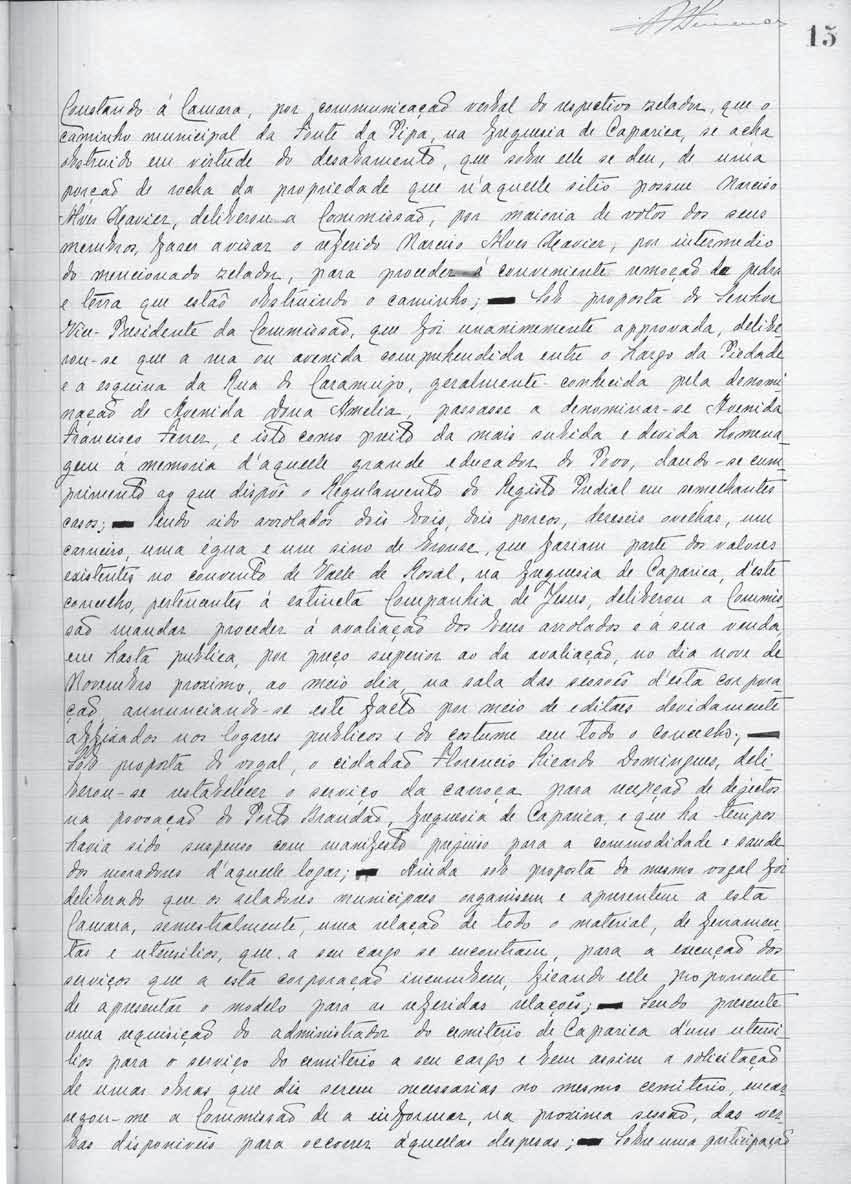 15
Constando á Camara, por communicação verbal do respectivo zelador, que o
caminho municipal da Fonte da Pipa, na freguesia de Caparica, se acha
obstruido em virtude do desabamento, que sobre elle se deu, de uma
porção de rocha da propriedade que n'aquelle sitio possue Narciso
Alves Xavier, deliberou a Commissão, por maioria de votos dos seus
membros, fazer avisar o referido Narciso Alves Xavier, por intermedio
do mencionado zelador, para proceder á conveniente remoção de pedra
e terra que estão obstruindo o caminho; — Sob proposta do Senhor
Vice-Presidente da Commissão, que foi unanimemente approvada, delibe
rou-se que a rua ou avenida comprehendida entre o Largo da Piedade
e a esquina da Rua do Caramujo, geralmente conhecida pela denomi
nação de Avenida Dona Amelia, passasse a denominar-se Avenida
Francisco Ferrer, e isto como preito da mais subida e devida homena
gem á memoria d'aquelle grande educador do Povo, dando-se cum
primento ao que dispõe o Regulamento do Registo Predial em semelhantes
casos; — Tendo sido arrolados dois bois, dois porcos, dezeseis ovelhas, um
carneiro, uma égua e um sino de bronse, que faziam parte dos valores
existentes no convento de Valle de Rosal, na freguesia de Caparica, d'este
concelho, pertencentes á extincta Companhia de Jesus, deliberou a Commis
são mandar proceder á avaliação dos bens arrolados e á sua venda
em hasta publica, por preço superior ao da avaliação, no dia nove de
Novembro proximo, ao meio dia, na sala das sessões d'esta corpora
ção annunciando-se este facto por meio de editaes devidamente
affixados nos logares publicos e do costume em todo o concelho; —
Sob proposta do vogal, o cidadão Florencio Ricardo Domingues, deli-
berou-se restabelecer o serviço da carroça para recepção de dejectos
na povoação do Porto Brandão, freguesia de Caparica, e que ha tempos
havia sido suspenso com manifesto prejuiso para a commodidade e saude
dos moradores d'aquelle logar; — Ainda sob proposta do mesmo vogal foi
deliberado que os zeladores municipaes organisem e apresentem a esta
Camara, semestralmente, uma relação de todo o material, de ferramen-
tas e utensilios, que a seu cargo se encontram, para a execução dos
serviços que a esta corporação incumbem, ficando elle proponente
de apresentar o modelo para as referidas relações; — Sendo presente
uma requisição do administrador do cemiterio de Caparica d'uns utensi-
lios para o serviço do cemiterio a seu cargo e bem assim a solicitação
de umas obras que diz serem necessarias no mesmo cemiterio, encar
regou-me a Commissão de a informar, na proxima sessão, das ver-
bas disponiveis para occorrer áquellas despesas; — Sobre uma participação